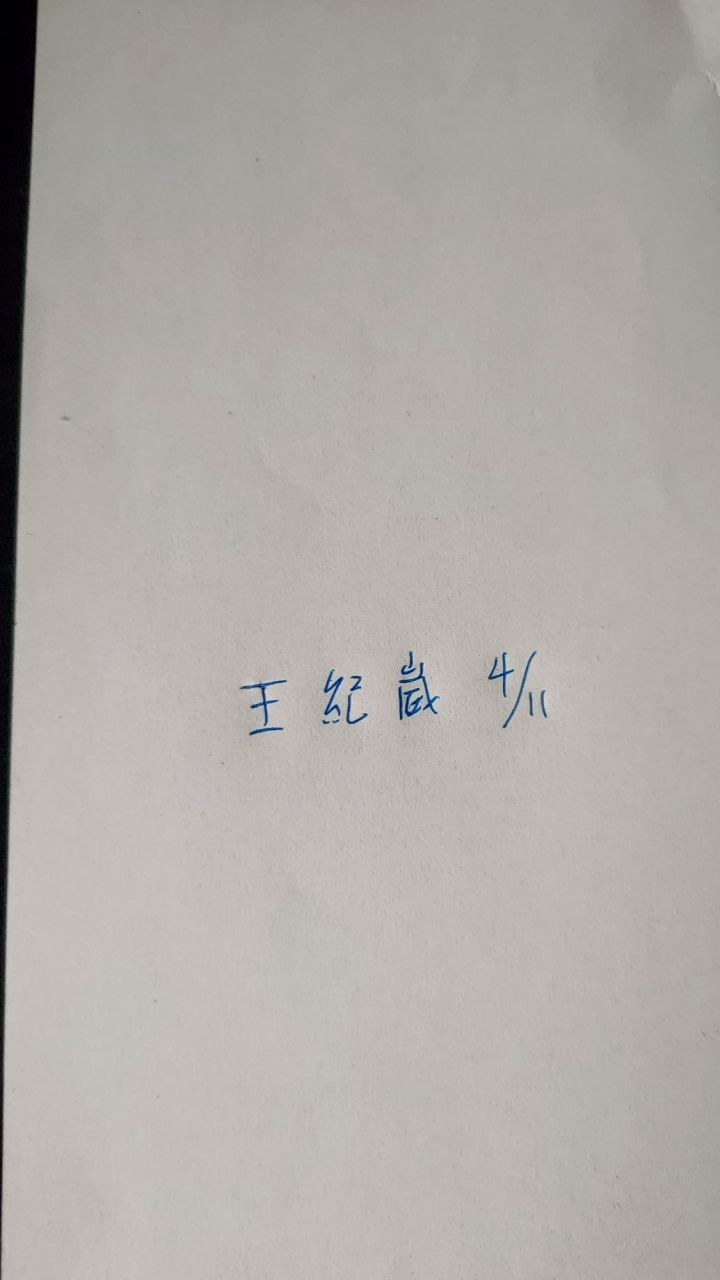 王 紀 崴 4/11